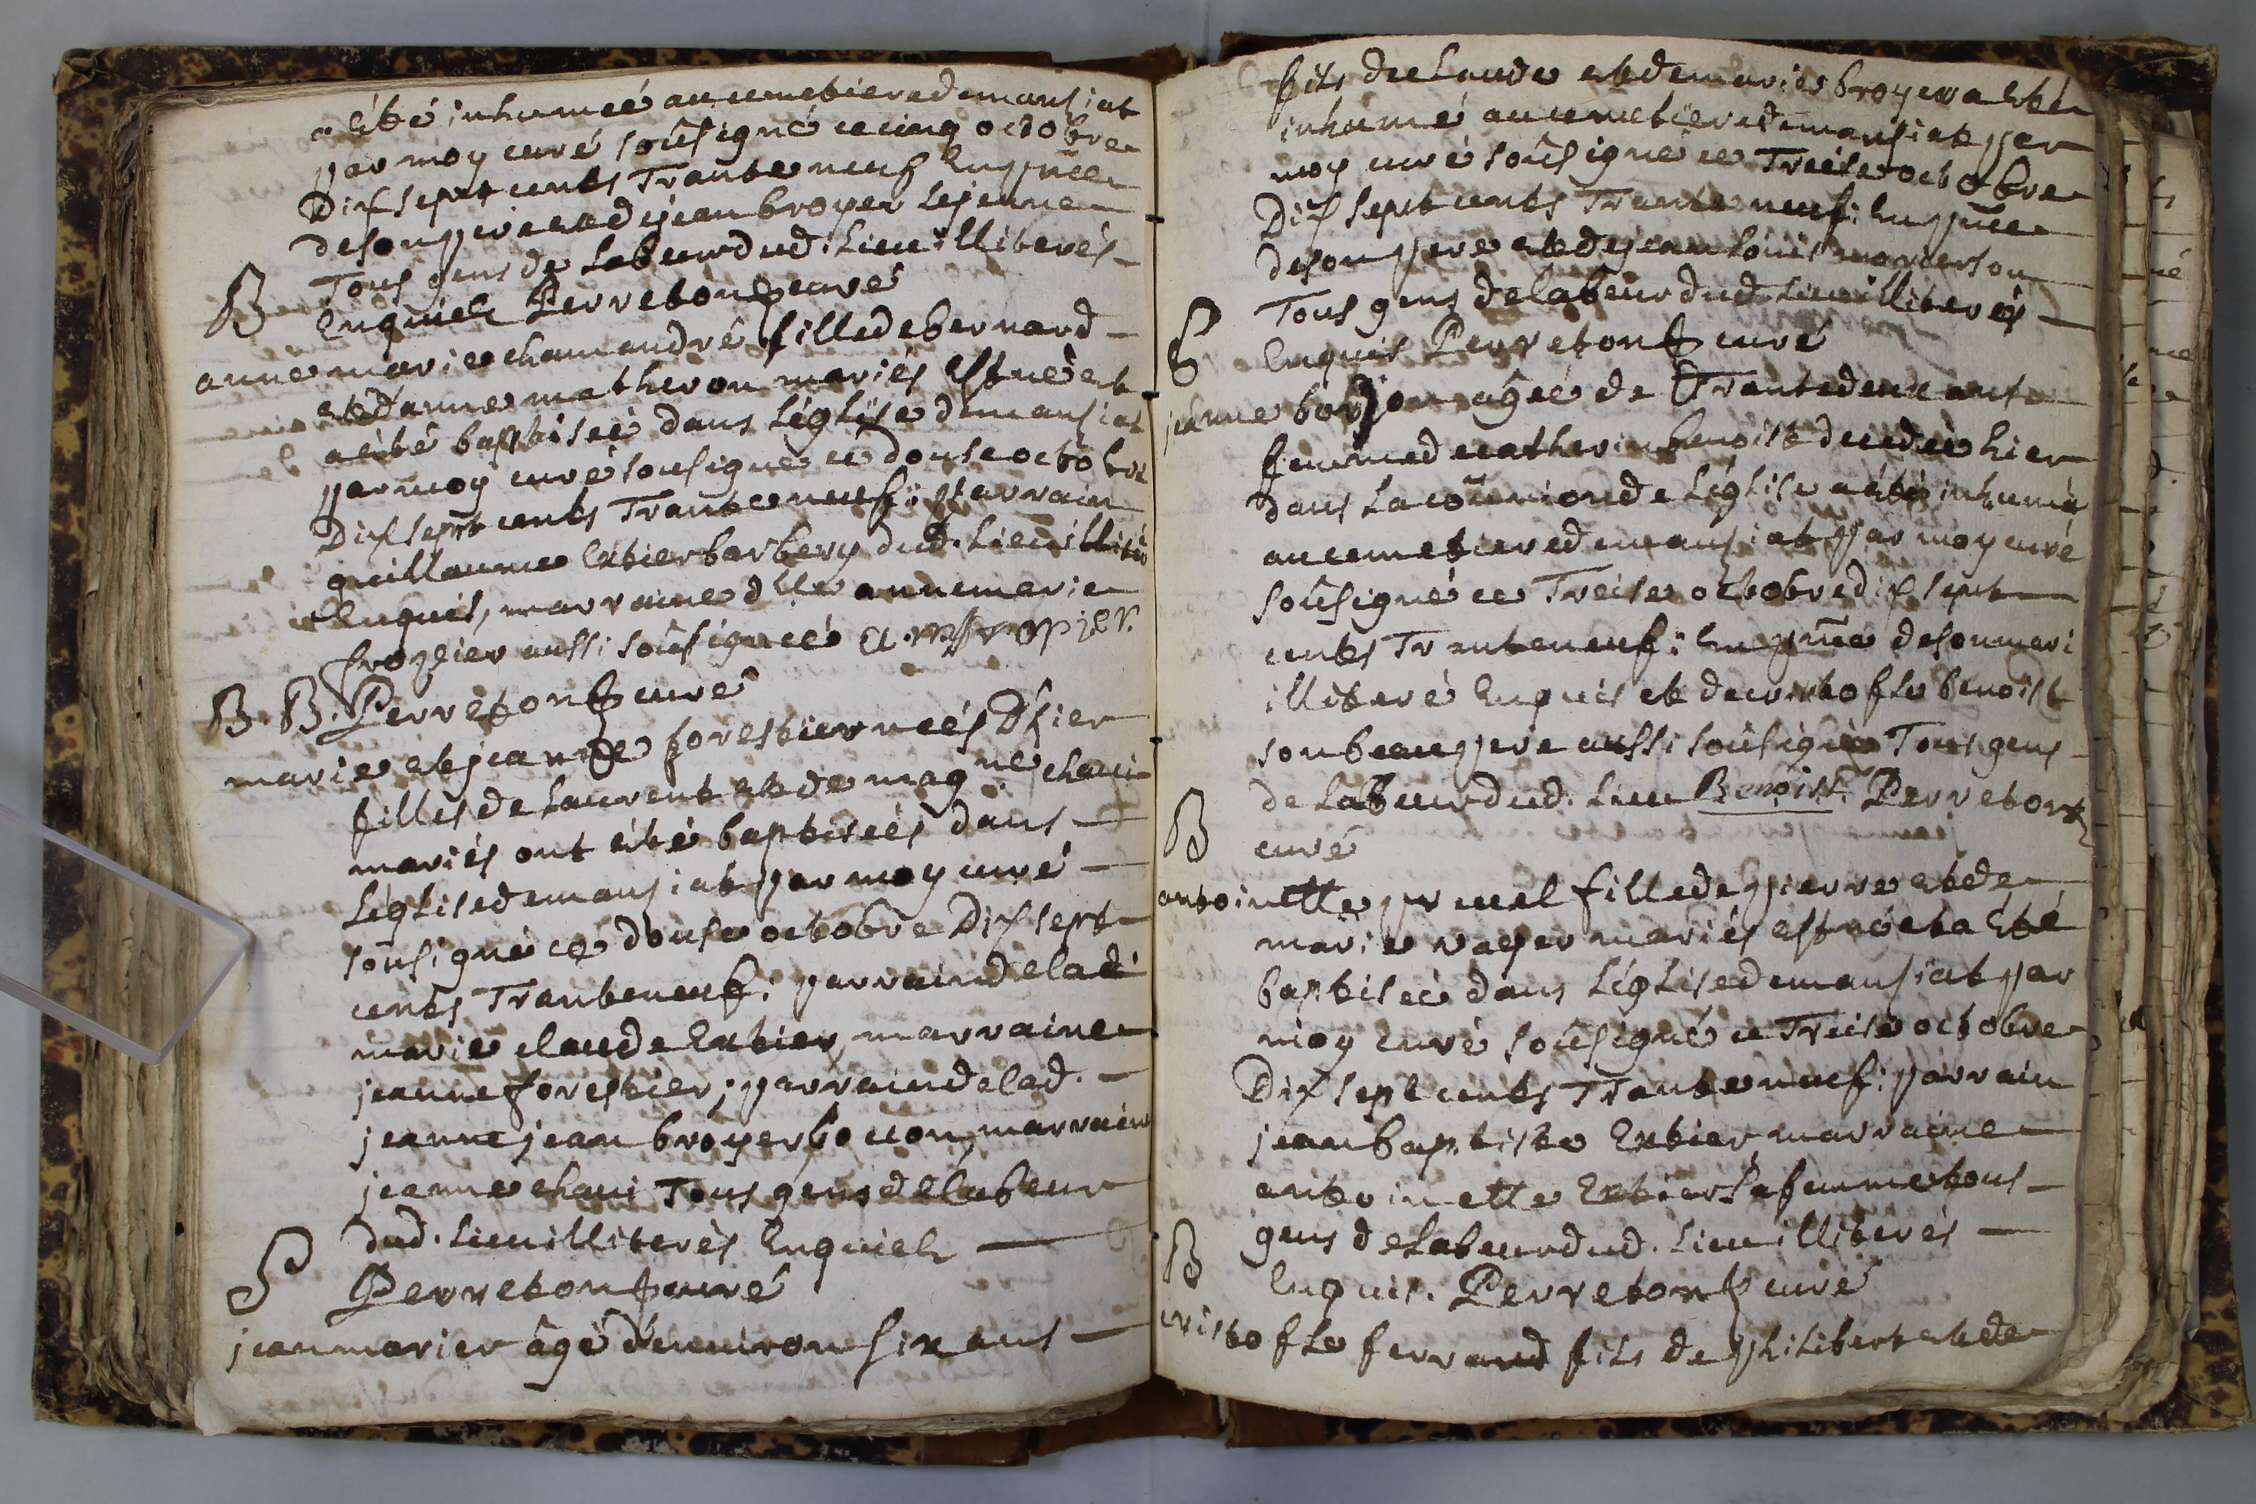 a été inhumeé au cimetiere de mansiat
par moy curé soûsigné ce cinq octobre
Dix sept cents Trante neuf En pñce
de son pere et de jean broyer Le jeune
Tous gens de Labeur dud. Lieu illiterés
Enquich Perreton curé
B
anne marie chamandré fille de bernard
et d'anne matheron mariés est neé et
a eté baptiseé dans Léglise de mansiat
par moy curé soûsigné ce douse octobre
Dix sept cents Trante neuf: parrain
guillaume barbery dud. Lieu illiteré
Enquis, marraine dlle anne marie
frozier aussi soûsigneé
B. B. Perreton curé
marie et jeanne forestier neés D'hier
filles de Laurent et de mag.ne chani
mariés ont eté baptiseés dans
Léglise de mansiat par moy curé
soûsigné ce douse octobre Dix sept
cents Trante neuf: parrain de lad.
marie claude Extier, marraine
jeanne forestier; parrain de lad.
jeanne jean broyer marraine
jeanne chani Tous gens de labeur
dud. Lieu illiterés Enquich
S Perreton curé
jean marier âgé d'environ six ans
fils de claude et de marie broyer a eté
inhumé au cimetiere de mansiat par
moy curé soûsigné ce Treise octobre
Dix sept cents Trante neuf: En pñce
de son pere et de jean Loüis
Tous gens de labeur dud. Lieu illiterés
Enquis Perreton curé
S
jeanne âgeé de Trante deux ans
femme de catherin benoist decedeé hier
dans La coñunion de Léglise a été inhumé
au cimetiere de mansiat par moy curé
soûsigné ce Treise octobre dix sept
cents Trante neuf: En pñce de son mari
illiteré Enquis et de cristofle benoist
son beaupere aussi soûsigné Tous gens
de Labeur dud. Lieu Benoist Perreton
curé
B
antoinette pr fille de pierre et de
marie mariés est neé et a Eté
baptiseé dans Léglise de mansiat par
moy Curé soûsigné ce Treise octobre
Dix sept cents Trante neuf: parrain
jean baptiste Extier marraine
antoinette Extier sa femme tous
gens de Labeur dud. Lieu illiterés
Enquis. Perreton curé
B
cristofle ferrand fils de philibert et de